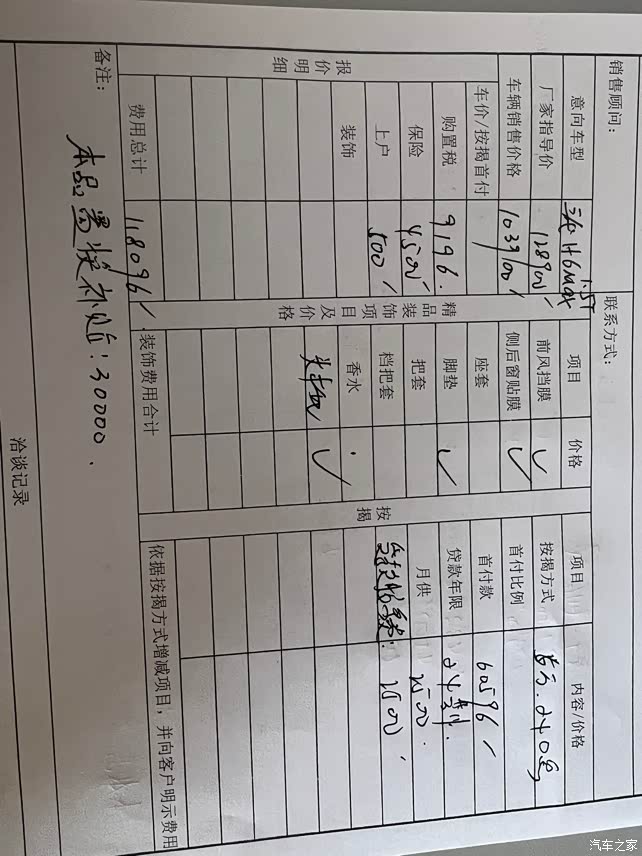 销售顾问：
联系方式：
意向车型 H6max 1.5T 项目 价格 项目 内容/价格
厂家指导价 128900 前风挡膜 ✓ 按揭方式
车辆销售价格 103900 侧后窗贴膜 ✓ 首付比例
车价/按揭首付 座套 首付款 60596
购置税 9196. 脚垫 ✓ 贷款年限 24期.
保险 4500 把套 月供 2500.
上户 500 档把套 2500
装饰 香水
✓
报价明细
精品装饰项目及价格
按揭
费用总计 118096 装饰费用合计 依据按揭方式增减项目，并向客户明示费用
备注：
本品置换补贴：30000.
洽谈记录
汽车之家